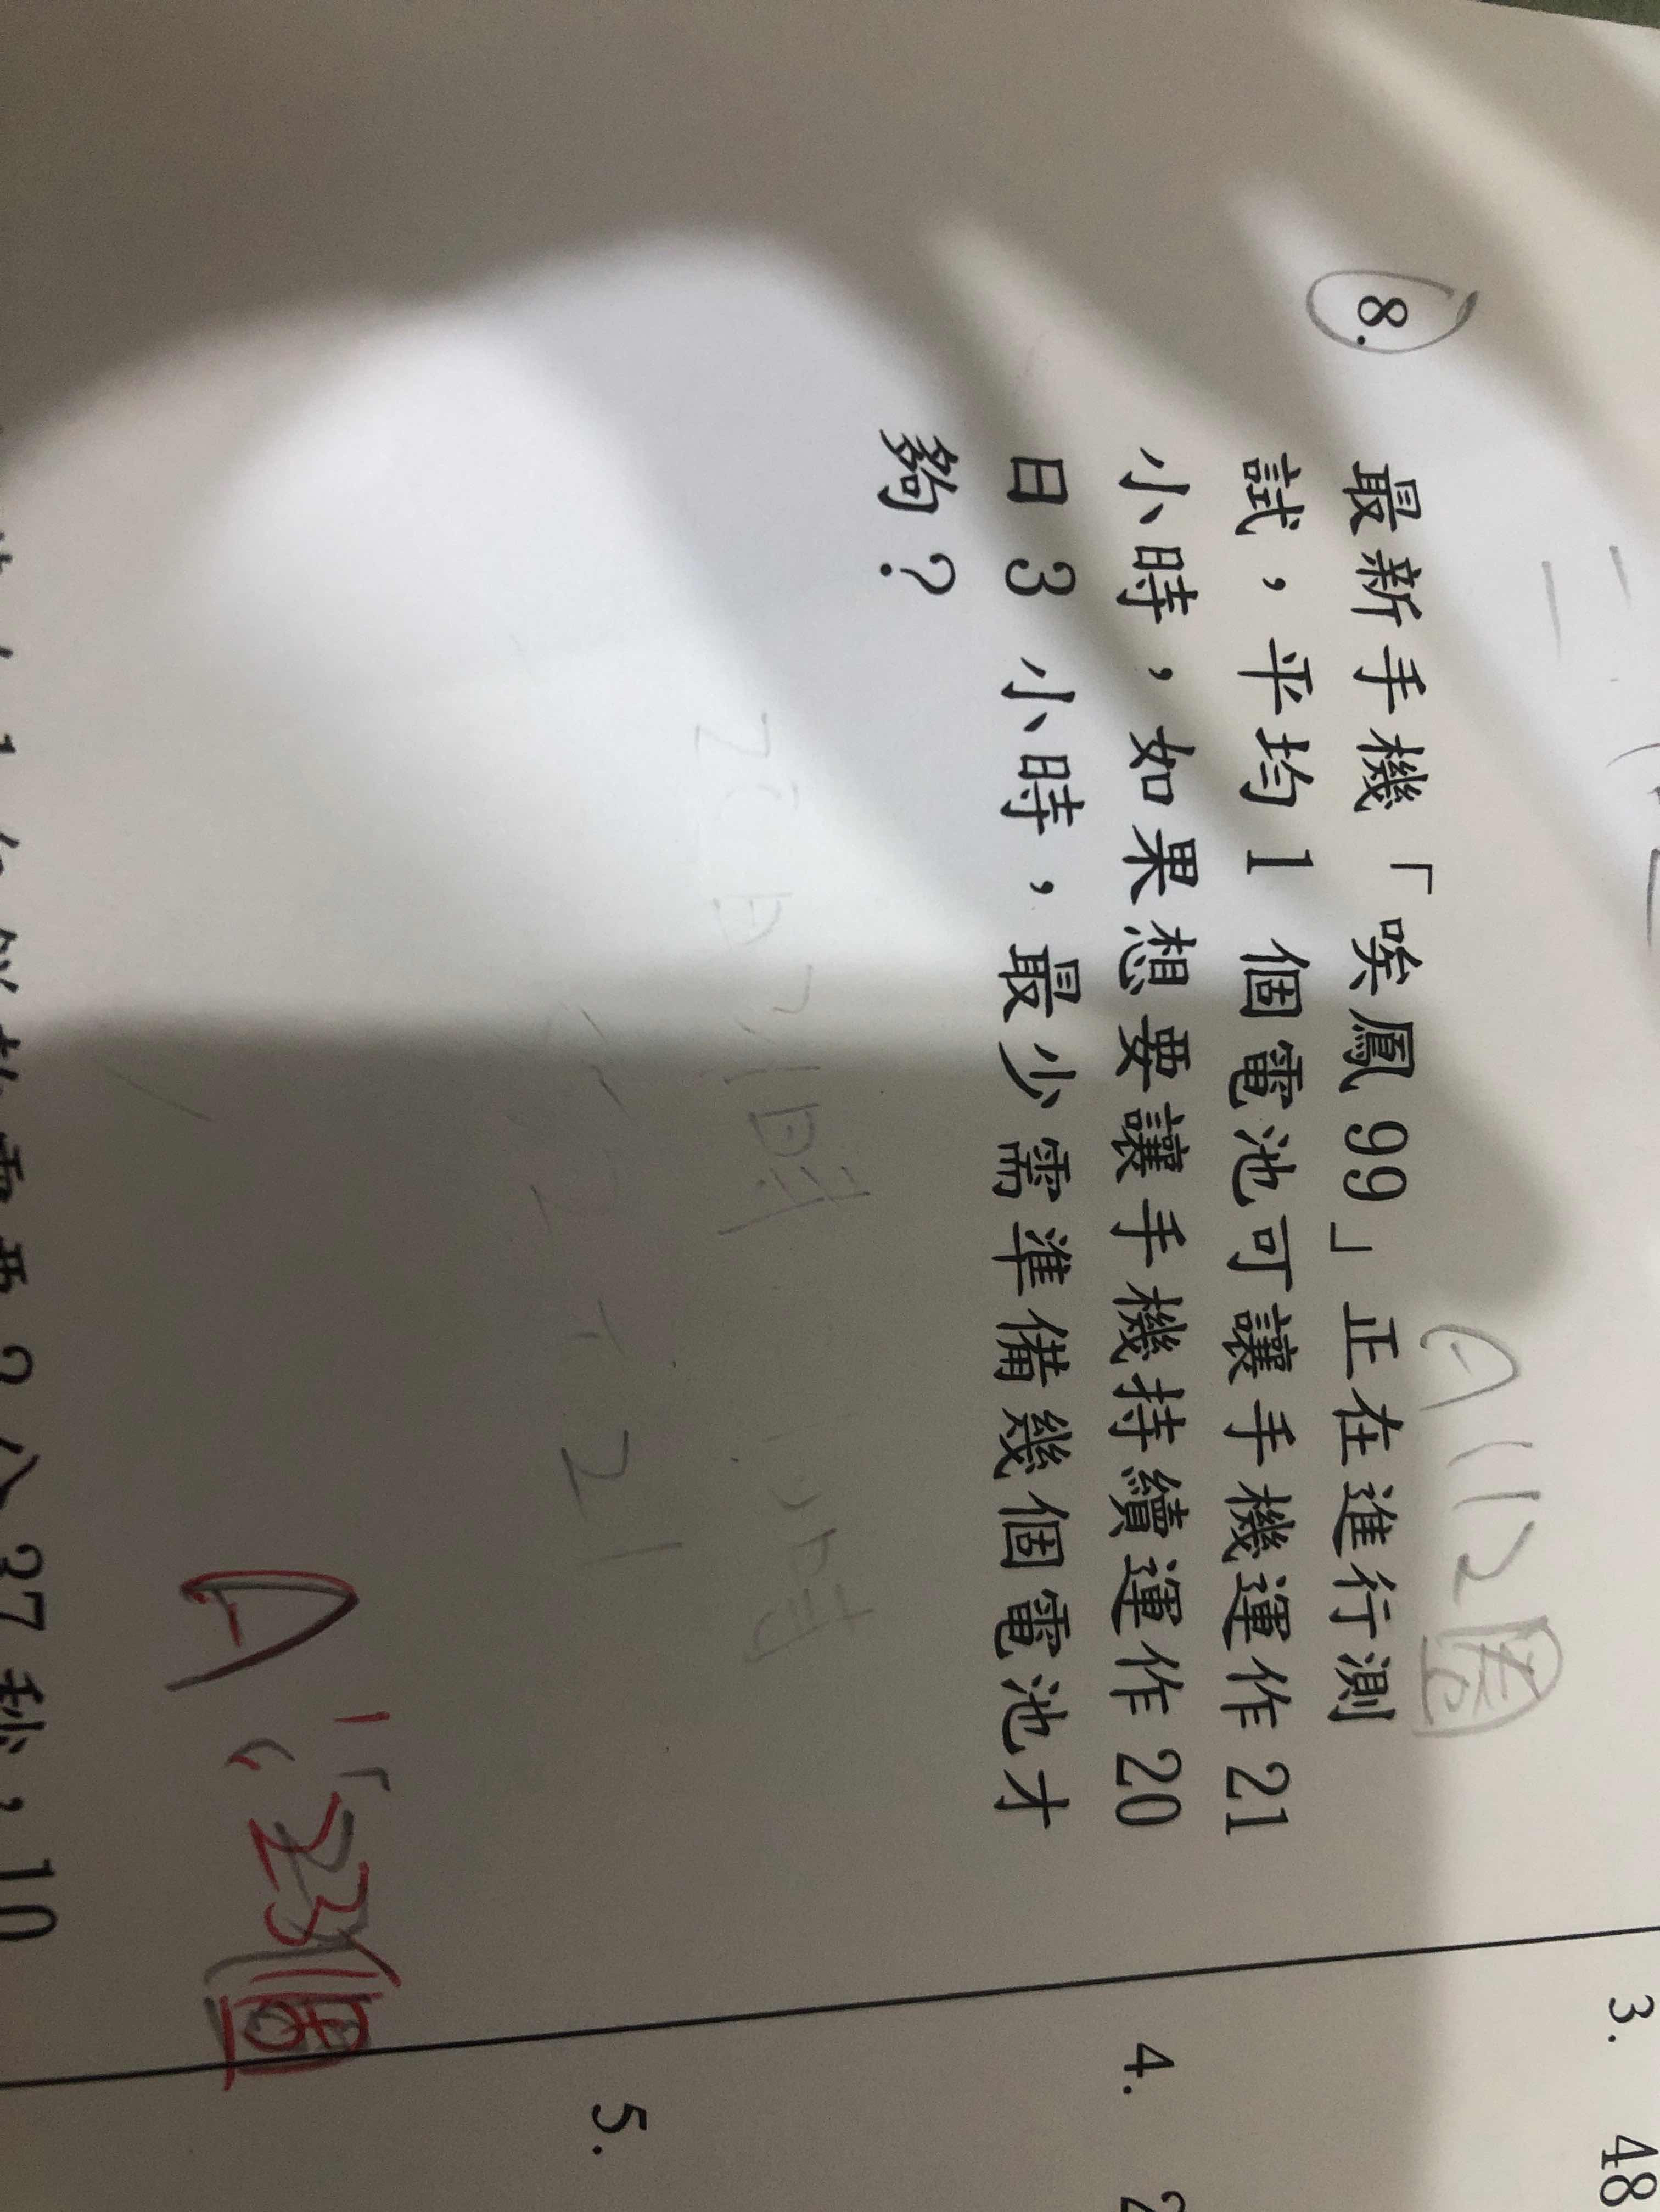 A:12圈
8. 最新手機「唉鳳99」正在進行測
試，平均1個電池可讓手機運作21
小時，如果想要讓手機持續運作20
日3小時，最少需準備幾個電池才
夠？
20日3小時
÷21
A:23個
3. 48
4. 2
5.
37秒，10